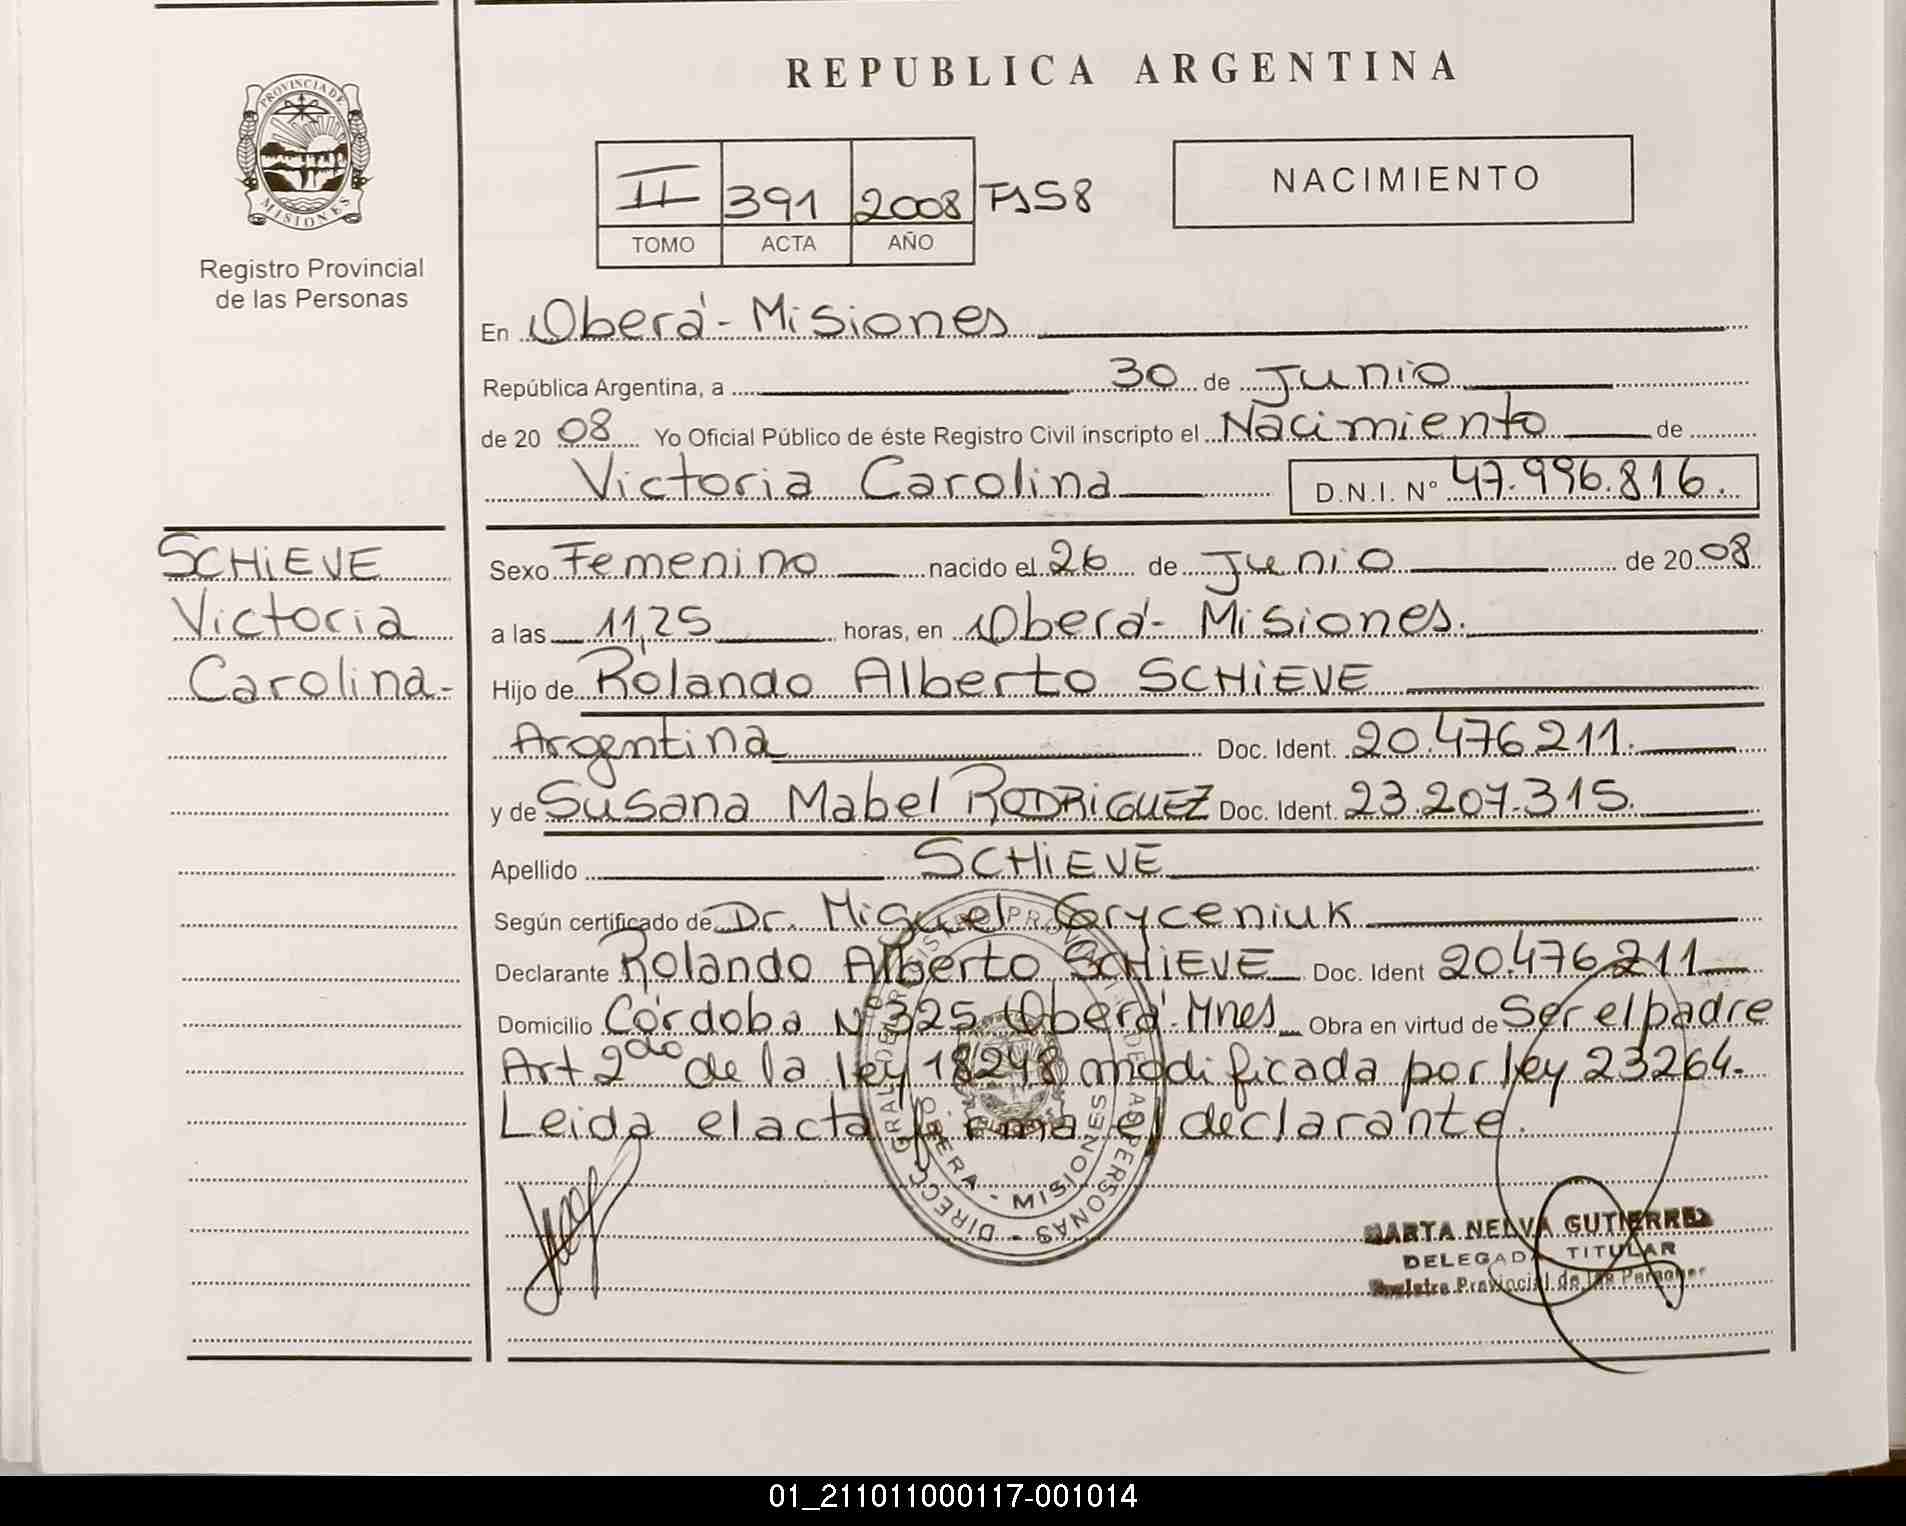 REPUBLICA ARGENTINA
PROVINCIA DE MISIONES
Registro Provincial
de las Personas
II 391 2008 F158
TOMO ACTA AÑO
NACIMIENTO
En Oberá - Misiones
República Argentina, a 30 de Junio
de 20 08 Yo Oficial Público de éste Registro Civil inscripto el Nacimiento de
Victoria Carolina D.N.I. N° 47.996.816.
SCHiEVE
Victoria
Carolina-
Sexo Femenino nacido el 26 de Junio de 20 08
a las 11,25 horas, en Oberá - Misiones.
Hijo de Rolando Alberto SCHiEVE
Argentina Doc. Ident. 20.476.211.
y de Susana Mabel RODRiGUEZ Doc. Ident. 23.207.315.
Apellido SCHiEVE
Según certificado de Dr. Miguel Gryceniuk
Declarante Rolando Alberto SCHiEVE Doc. Ident 20.476.211
Domicilio Córdoba N° 325 Oberá - Mnes Obra en virtud de Ser el padre
Art 2do de la ley 18248 modificada por ley 23264.
Leida el acta firma el declarante.
DIRECC. GRAL. DE REGISTRO PROVINCIAL DE LAS PERSONAS
OBERA - MISIONES
MARTA NELVA GUTIERREZ
DELEGADA TITULAR
Registro Provincial de las Personas
01_211011000117-001014